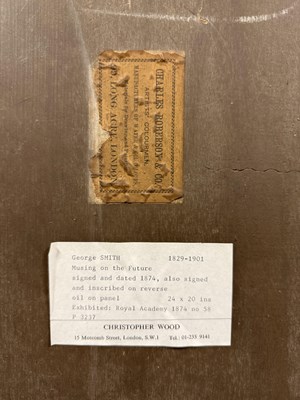 CHARLES ROBERSON & CO.
ARTISTS' COLOURMEN,
LONG ACRE, LONDON
George SMITH 1829-1901
Musing on the Future
signed and dated 1874, also signed
and inscribed on reverse
oil on panel 24 x 20 ins
Exhibited: Royal Academy 1874 no 58
P 2237
CHRISTOPHER WOOD
15 Motcomb Street, London, S.W.1 Tel: 01-235 9141